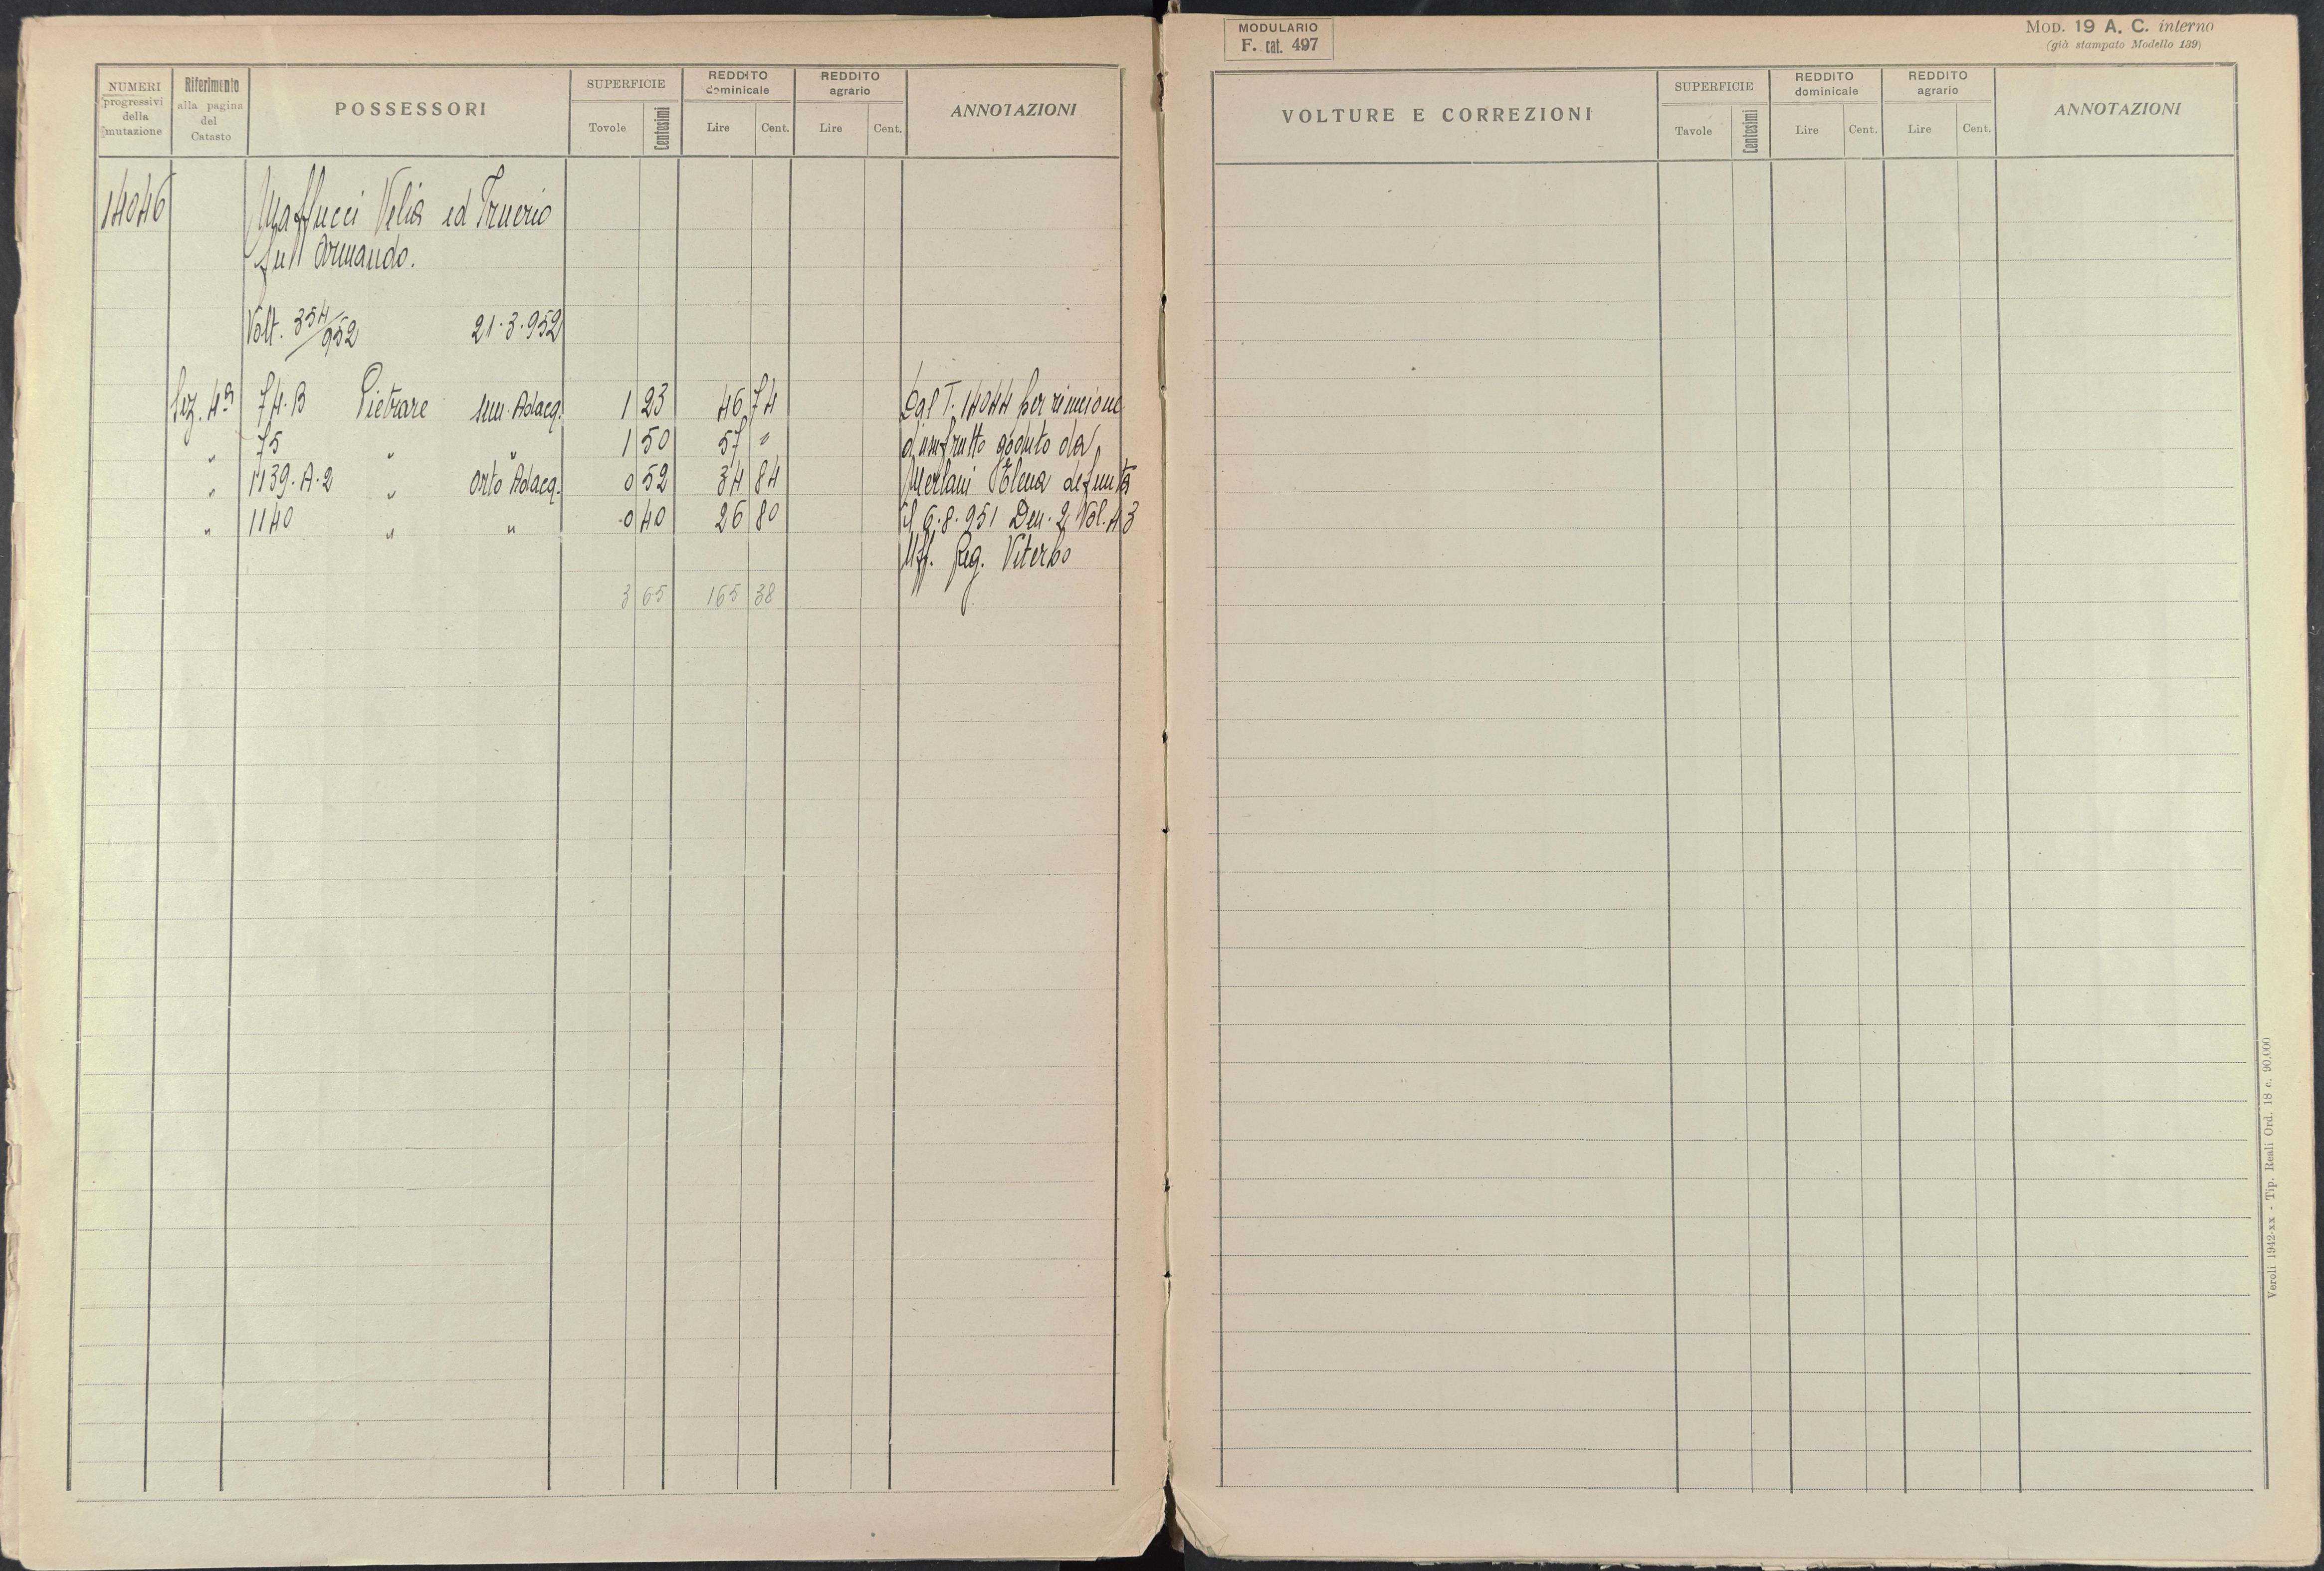 NUMERI progressivi della mutazione
Riferimento alla pagina del Catasto
POSSESSORI
SUPERFICIE
Tovole Centesimi
REDDITO dominicale
Lire Cent.
REDDITO agrario
Lire Cent.
ANNOTAZIONI
14046 Maffucci Velia ed
fu Armando.
Volt. 354/952 21.3.952
Sez. 4ª 74.B Pietrare sem. Adacq. 1 23 46 74 Dal T. 14044 per riunione
" 75 " " 1 50 57 " d'usufrutto goduto da
" 1139.A.2 " Orto Adacq. 0 52 34 84 Merlani Elena defunta
" 1140 " " 0 40 26 80 il 6.8.951 Den. 2 Vol. 43
Uff. Reg. Viterbo
3 65 165 38
MODULARIO
F. cat. 497
MOD. 19 A. C. interno
(già stampato Modello 139)
VOLTURE E CORREZIONI
SUPERFICIE
Tavole Centesimi
REDDITO dominicale
Lire Cent.
REDDITO agrario
Lire Cent.
ANNOTAZIONI
Veroli 1942-XX - Tip. Reali Ord. 18 c. 90.000